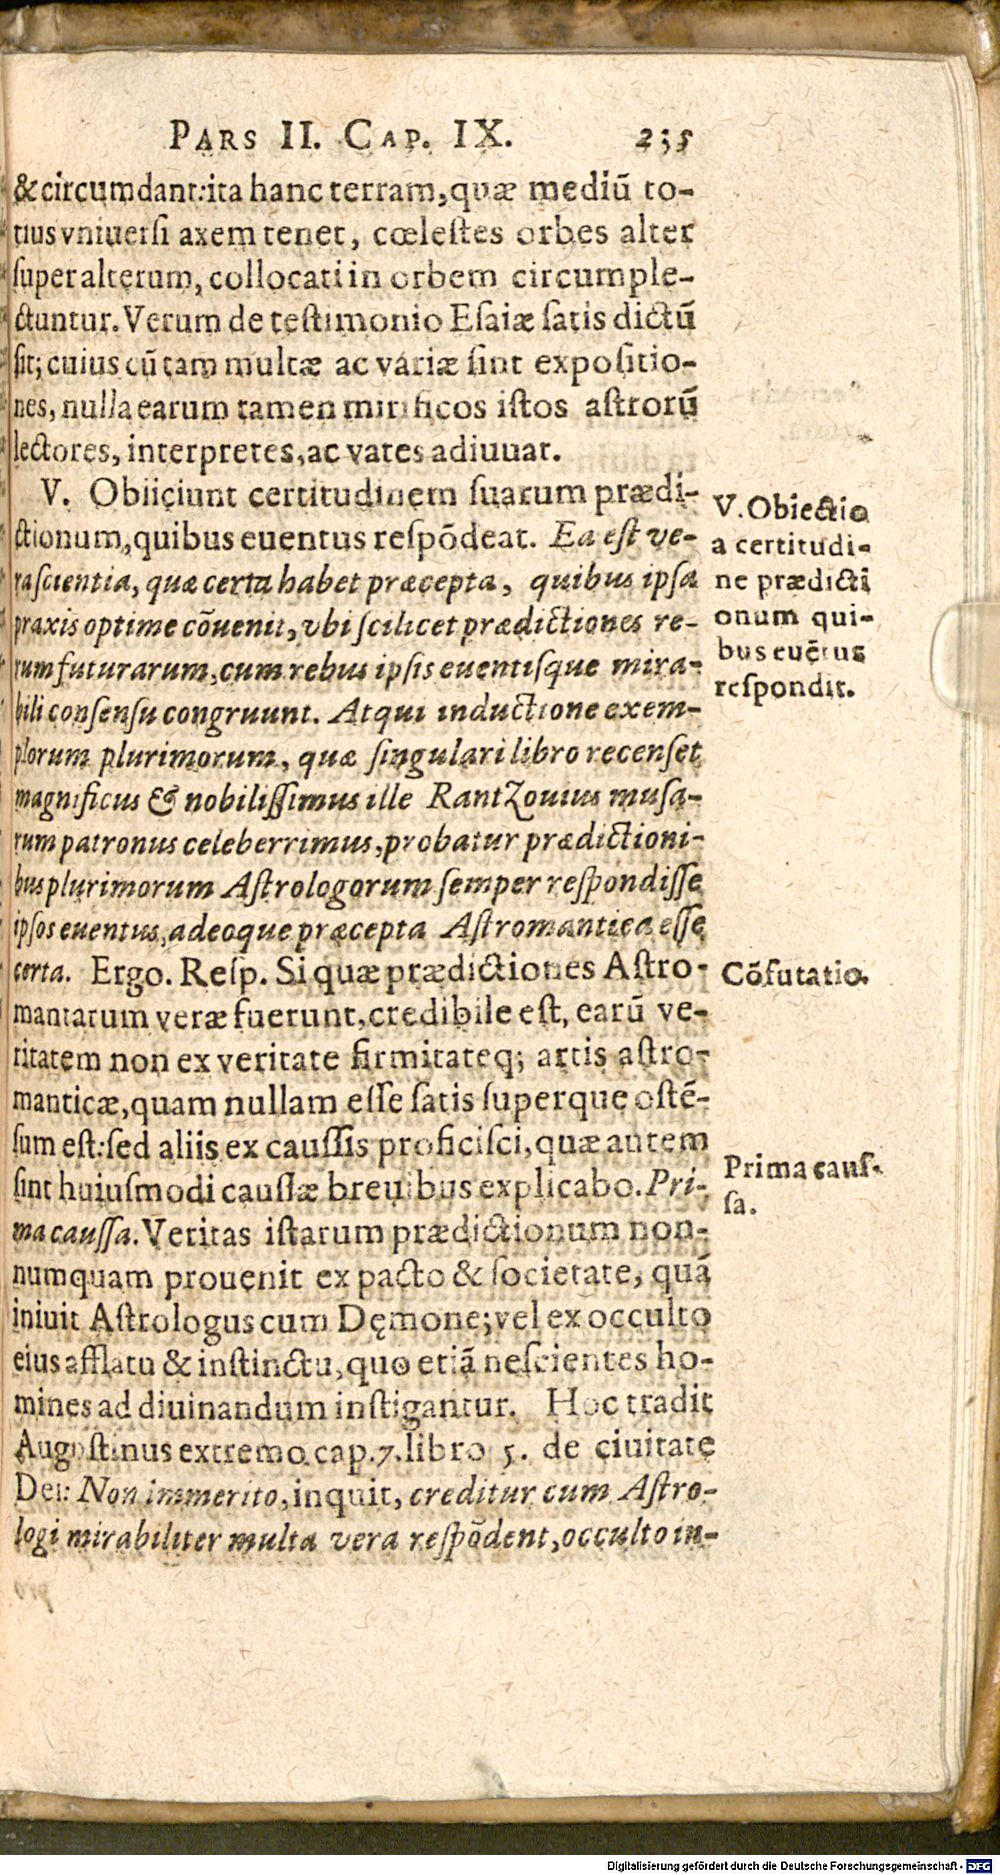 PARS II. CAP. IX. 235
&circumdant:ita hanc terram,quæ mediũ to-
tius vniuersi axem tenet, cœlestes orbes alter
super alterum, collocati in orbem circumple-
ctuntur. Verum de testimonio Esaiæ satis dictũ
sit; cuius cũ tam multæ ac variæ sint expositio-
nes, nulla earum tamen mirificos istos astrorũ
lectores, interpretes, ac vates adiuuat.
V. Obiiciunt certitudinem suarum prædi-
ctionum, quibus euentus respõdeat. Ea est ve-
ra scientia, quæ certa habet præcepta, quibus ipsa
praxis optime cõuenit, vbi scilicet prædictiones re-
rum futurarum, cum rebus ipsis euentisque mira-
bili consensu congruunt. Atqui inductione exem-
plorum plurimorum, quæ singulari libro recenset
magnificus & nobilissimus ille Rantzouius musa-
rum patronus celeberrimus, probatur prædictioni-
bus plurimorum Astrologorum semper respondisse
ipsos euentus, adeoque præcepta Astromantica esse
certa. Ergo. Resp. Si quæ prædictiones Astro-
mantarum veræ fuerunt, credibile est, earũ ve-
ritatem non ex veritate firmitateq; artis astro-
manticæ, quam nullam esse satis superque ostẽ-
sum est: sed aliis ex caussis proficisci, quæ autem
sint huiusmodi caussæ breuibus explicabo. Pri-
ma caussa. Veritas istarum prædictionum non-
numquam prouenit ex pacto & societate, quã
iniuit Astrologus cum Dęmone; vel ex occulto
eius afflatu & instinctu, quo etiã nescientes ho-
mines ad diuinandum instigantur. Hoc tradit
Augustinus extremo cap. 7. libro 5. de ciuitate
Dei: Non immerito, inquit, creditur cum Astro-
logi mirabiliter multa vera respõdent, occulto in-
V. Obiectio
a certitudi-
ne prædicti
onum qui-
bus euẽtus
respondit.
Cõfutatio.
Prima caus-
sa.
Digitalisierung gefördert durch die Deutsche Forschungsgemeinschaft - DFG